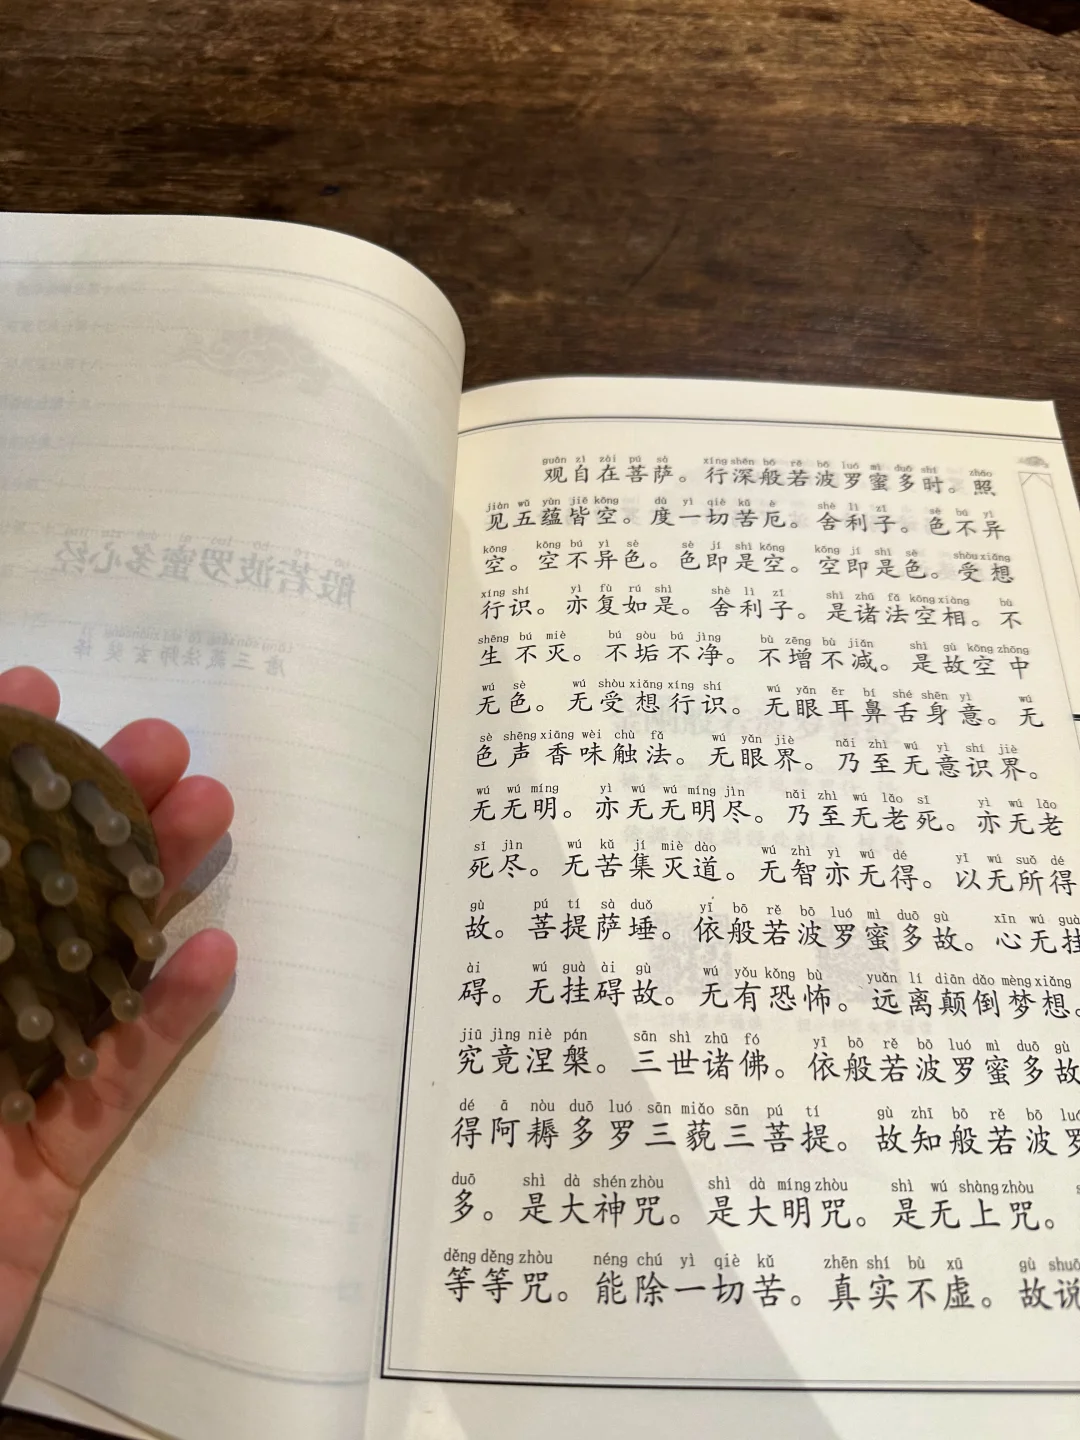 guān zì zài pú sà xíng shēn bō rě bō luó mì duō shí zhào
观自在菩萨。行深般若波罗蜜多时。照
jiàn wǔ yùn jiē kōng dù yì qiè kǔ è shè lì zǐ sè bú yì
见五蕴皆空。度一切苦厄。舍利子。色不异
kōng kōng bú yì sè sè jí shì kōng kōng jí shì sè shòu xiǎng
空。空不异色。色即是空。空即是色。受想
xíng shí yì fù rú shì shè lì zǐ shì zhū fǎ kōng xiàng bù
行识。亦复如是。舍利子。是诸法空相。不
shēng bú miè bú gòu bú jìng bù zēng bù jiǎn shì gù kōng zhōng
生不灭。不垢不净。不增不减。是故空中
wú sè wú shòu xiǎng xíng shí wú yǎn ěr bí shé shēn yì wú
无色。无受想行识。无眼耳鼻舌身意。无
sè shēng xiāng wèi chù fǎ wú yǎn jiè nǎi zhì wú yì shí jiè
色声香味触法。无眼界。乃至无意识界。
wú wú míng yì wú wú míng jìn nǎi zhì wú lǎo sǐ yì wú lǎo
无无明。亦无无明尽。乃至无老死。亦无老
sǐ jìn wú kǔ jí miè dào wú zhì yì wú dé yǐ wú suǒ dé
死尽。无苦集灭道。无智亦无得。以无所得
gù pú tí sà duǒ yī bō rě bō luó mì duō gù xīn wú guà
故。菩提萨埵。依般若波罗蜜多故。心无挂
ài wú guà ài gù wú yǒu kǒng bù yuǎn lí diān dǎo mèng xiǎng
碍。无挂碍故。无有恐怖。远离颠倒梦想。
jiū jìng niè pán sān shì zhū fó yī bō rě bō luó mì duō gù
究竟涅槃。三世诸佛。依般若波罗蜜多故
dé ā nòu duō luó sān miǎo sān pú tí gù zhī bō rě bō luó
得阿耨多罗三藐三菩提。故知般若波罗
duō shì dà shén zhòu shì dà míng zhòu shì wú shàng zhòu
多。是大神咒。是大明咒。是无上咒。
děng děng zhòu néng chú yì qiè kǔ zhēn shí bù xū gù shuō
等等咒。能除一切苦。真实不虚。故说
般若波罗蜜多心经
唐三藏法师玄奘译